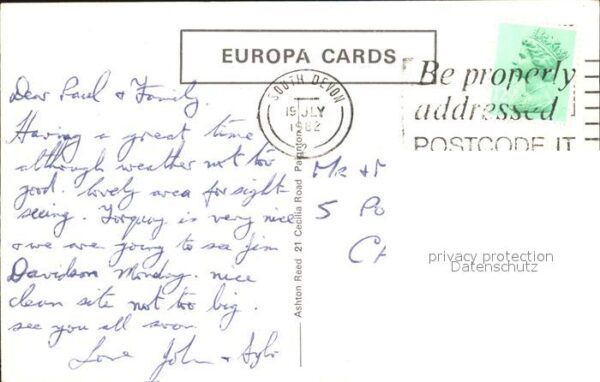 EUROPA CARDS
SOUTH DEVON
19 JLY
1982
Be properly
addressed
POSTCODE IT
Dear Paul & Family.
Having a great time
although weather not too
good. lovely area for sight-
seeing. Torquay is very nice
& we are going to see Jim
Davidson Monday. nice
clean site not too big.
see you all soon
Love John &
Ashton Reed 21 Cecilia Road Paignton
Mr & M
5 Po
privacy protection
Datenschutz